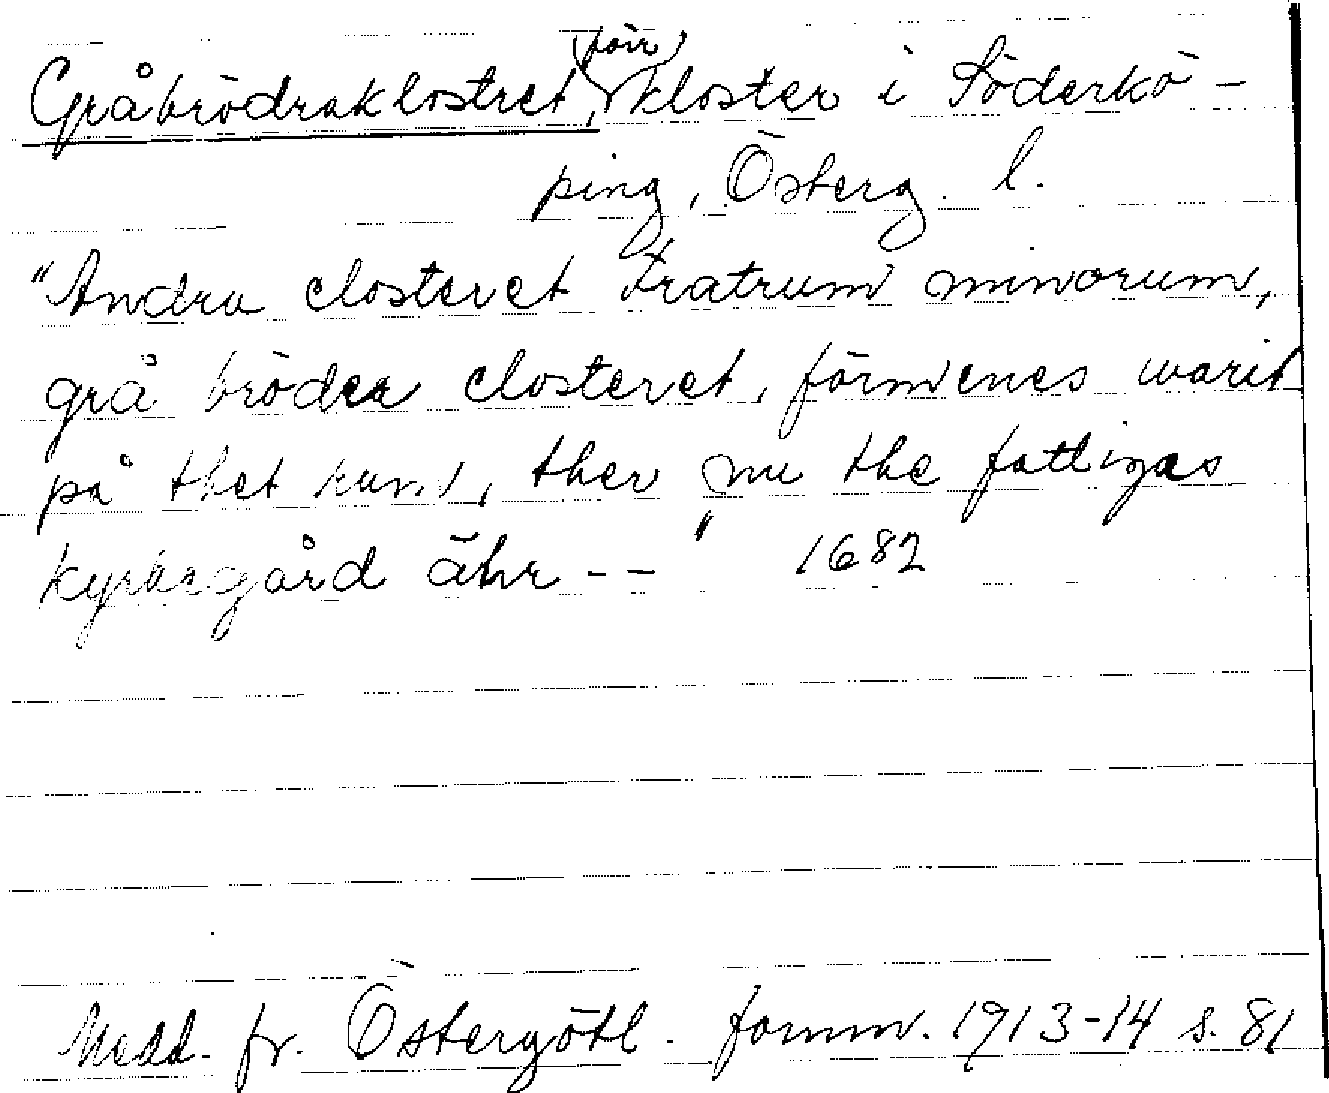 Gråbrödraklostret, (förr) kloster i Söderkö-
ping, Österg. l.
"Andra closteret Fratrum minorum,
grå bröder closteret, förmenes warit
på thet rum, ther nu the fattigas
kyrkogård ähr -- " 1682
Medd. fr. Östergötl. fornm. 1913-14 s. 81